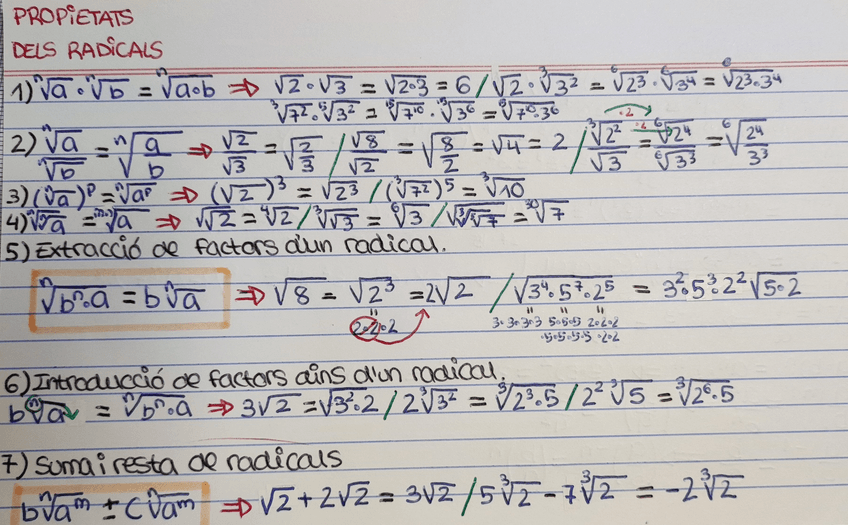 PROPIETATS
DELS RADICALS
1) ⁿ√a · ⁿ√b = ⁿ√a·b ⇒ √2 · √3 = √2·3 = 6 / √2 · ³√3² = ⁶√2³ · ⁶√3⁴ = ⁶√2³·3⁴
³√7² · ⁵√3² = ¹⁵√7¹⁰ · ¹⁵√3⁶ = ¹⁵√7¹⁰·3⁶
2) ⁿ√a / ⁿ√b = ⁿ√(a/b) ⇒ √2/√3 = √(2/3) / √8/√2 = √(8/2) = √4 = 2 / ³√2²/√3 = ⁶√2⁴/⁶√3³ = ⁶√(2⁴/3³)
3) (ⁿ√a)ᵖ = ⁿ√aᵖ ⇒ (√2)³ = √2³ / (³√7²)⁵ = ³√10
4) ᵐ√ⁿ√a = ᵐ·ⁿ√a ⇒ √√2 = ⁴√2 / ³√√3 = ⁶√3 / √³√⁵√7 = ³⁰√7
5) Extracció de factors d'un radical.
ⁿ√bⁿ·a = b ⁿ√a ⇒ √8 = √2³ = 2√2 / √3⁴·5⁷·2⁵ = 3²·5³·2²√5·2
2·2·2 3·3·3·3 5·5·5 2·2·2
·5·5·5·5 ·2·2
6) Introducció de factors dins d'un radical.
b ⁿ√a = ⁿ√bⁿ·a ⇒ 3√2 = √3²·2 / 2 ³√3² = ³√2³·5 / 2² ³√5 = ³√2⁶·5
7) Suma i resta de radicals
b ⁿ√aᵐ ± c ⁿ√aᵐ ⇒ √2 + 2√2 = 3√2 / 5 ³√2 - 7 ³√2 = -2 ³√2